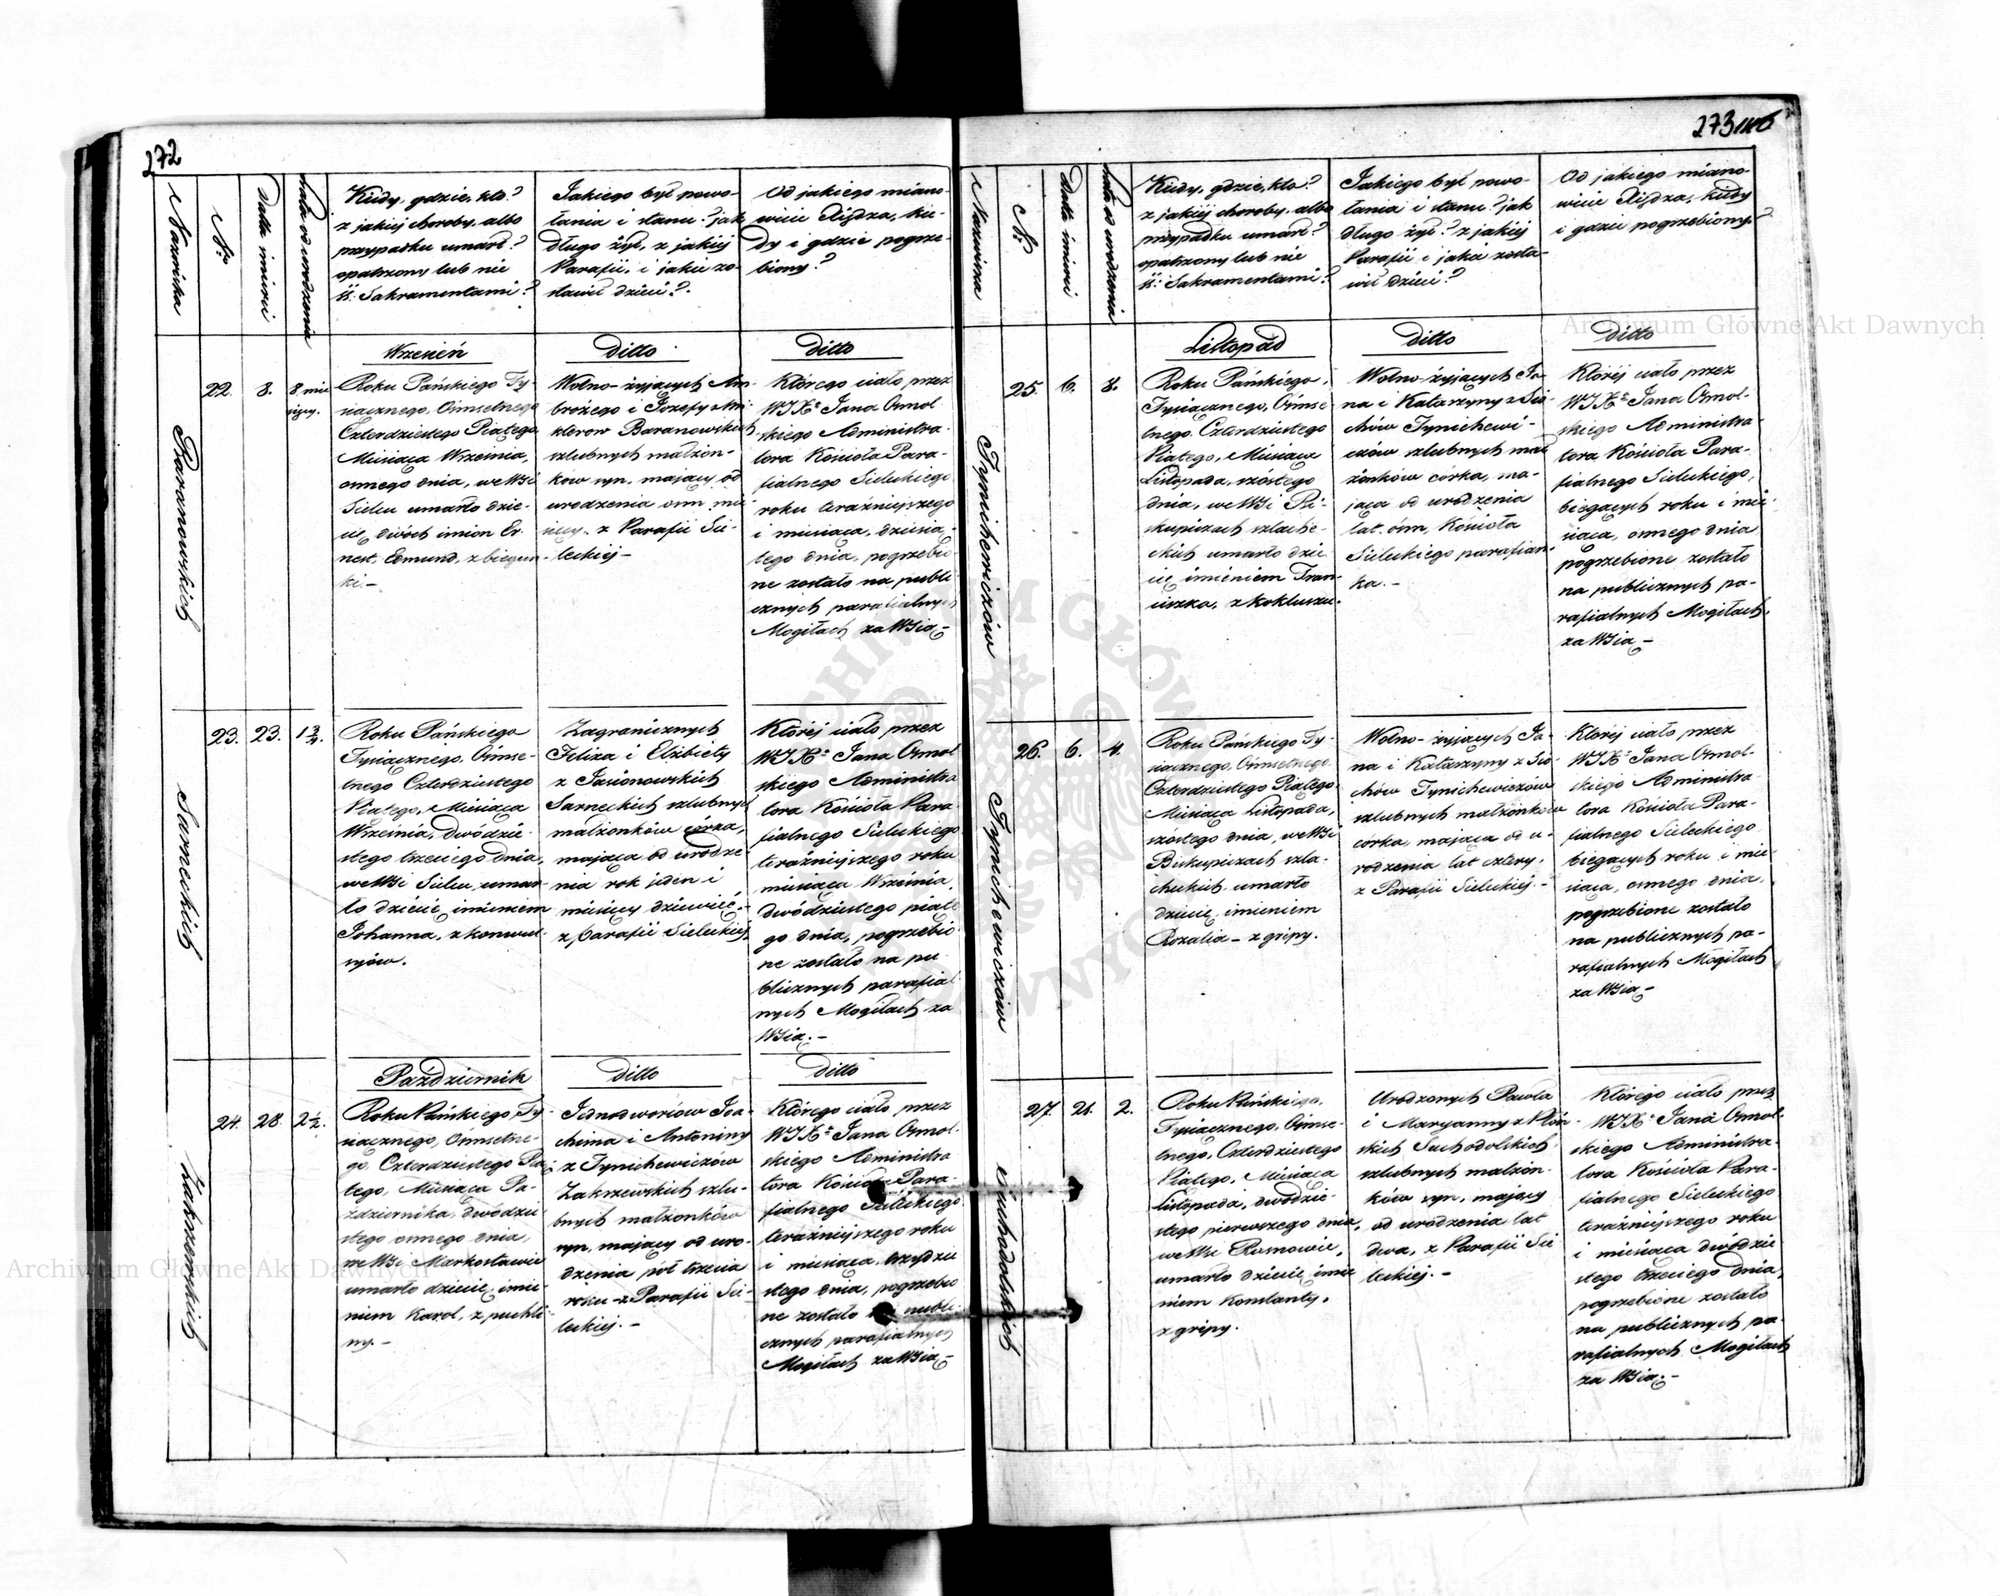 272
Nazwiska
No
Data śmierci
Lata od urodzenia
Kiedy, gdzie, kto?
z jakiéj choroby, albo
przypadku umarł?
opatrzony lub nie
śś: Sakramentami?
Jakiego był powo-
łania i stanu? jak
długo żył, z jakiéj
Parafii, i jakie zo-
stawił dzieci?
Od jakiego miano-
wicie Xiędza, kie-
dy i gdzie pogrze-
biony?
Wrzesień
ditto
ditto
Baranowskich
22.
8.
8 mie
sięcy.
Roku Pańskiego Ty-
siącznego, Ośmsetnego
Czterdziestego Piątego
Miesiąca Września,
osmego dnia, we Wsi
Sielcu umarło dzie-
cię dwóch imion Er-
nest, Edmund, z biegun-
ki.-
Wolno-żyjących Am-
brożego i Józefy z
Baranowskich
szlubnych małżon-
kow syn, mający od
urodzenia osm mie
sięcy. z Parafii Sie-
leckiej-
Którego ciało przez
WJX: Jana Osmol-
skiego Administra-
tora Kościoła Para-
fialnego Sieleckiego
roku teraźniejszego
i miesiąca, dziesią-
tego dnia, pogrzebio-
ne zostało na publi-
cznych parafialnych
Mogiłach za Wsią-
Sarneckich
23.
23.
1 3/4.
Roku Pańskiego
Tysiącznego, Ośmse-
tnego Czterdziestego
Piątego, Miesiąca
Września, dwódzie-
stego trzeciego dnia,
we Wsi Sielcu, umar-
ło dziécie imieniem
Johanna, z konwul-
syów.
Zagranicznych
Felixa i Elżbiety
z Jasionowskich
Sarneckich szlubnych
małżonków córka,
mająca od urodze-
nia rok jeden i
miesięcy dziewięć.-
z Parafii Sieleckiej
Któréj ciało przez
WJX: Jana Osmol
skiego Administra
tora Kościoła Para-
fialnego Sieleckiego
teraźniejszego roku
miesiąca Września
dwódziestego piąte
go dnia, pogrzebio-
ne zostało na pu-
blicznych parafial-
nych Mogiłach za
Wsią.-
Październik
ditto
ditto
Zakrzewskich
24.
28.
2 1/2.
Roku Pańskiego Ty-
siącznego, Ośmsetne-
go, Czterdziestego Pią-
tego, Miesiąca Pa-
ździernika, dwódzie-
stego osmego dnia,
we Wsi Markostawie
umarło dziecie, imie-
niem Karol, z puchli-
ny.-
Jednodworców Joa-
chima i Antoniny
z Tynichewiczów
Zakrzewskich szlu-
bnych małżonków
syn, mający od uro-
dzenia pół trzecia
roku - z Parafii Sie-
leckiej.-
Którego ciało przez
WJX: Jana Osmol-
skiego Administra
tora Kościoła Para-
fialnego Sieleckiego
teraźniejszego roku
i miesiąca, trzydzie
stego dnia, pogrzebio
ne zostało na publi-
cznych parafialnych
Mogiłach za Wsią-
273
Nazwiska
No
Data śmierci
Lata od urodzenia
Kiedy, gdzie, kto?
z jakiéj choroby, albo
przypadku umarł?
opatrzony lub nie
śś: Sakramentami?
Jakiego był powo-
łania i stanu? jak
długo żył? z jakiéj
Parafii i jakie zosta-
wił dzieci?
Od jakiego miano-
wicie Xiędza, kiedy
i gdzie pogrzebiony?
Listopad
ditto
ditto
Tynichewiczów
25.
6.
8.
Roku Pańskiego,
Tysiącznego, Ośmse-
tnego, Czterdziestego
Piątego, Miesiąca
Listopada, szóstego
dnia, we Wsi Bi-
skupiczach szlache-
ckich umarło dzie-
cię imieniem Fran-
ciszka, z kokluszu.
Wolno-żyjących Ja-
na i Katarzyny z
Tynichewi-
czów szlubnych mał
żonków córka, ma-
jąca od urodzenia
lat ośm, Kościoła
Sieleckiego parafian-
ka.-
Któréj ciało przez
WJX: Jana Osmol-
skiego Administra-
tora Kościoła Para-
fialnego Sieleckiego,
biegących roku i mie-
siąca, osmego dnia
pogrzebione zostało
na publicznych pa-
rafialnych Mogiłach
za Wsią-
Tynichewiczów
26.
6.
4.
Roku Pańskiego Ty-
siącznego, Ośmsetnego
Czterdziestego Piątego
Miesiąca Listopada,
szóstego dnia, we Wsi
Biskupiczach szla-
checkich umarło
dziecię imieniem
Rozalia - z gripy.
Wolno-żyjących Ja-
na i Katarzyny z
Tynichewiczów
szlubnych małżonków
córka, mająca od u-
rodzenia lat cztery,
z Parafii Sieleckiej.-
Któréj ciało przez
WJX: Jana Osmol-
skiego Administra-
tora Kościoła Para-
fialnego Sieleckiego
biegących roku i mie-
siąca, osmego dnia,
pogrzebione zostało
na publicznych pa-
rafialnych Mogiłach
za Wsią-
Suchodolskich
27.
21.
2.
Roku Pańskiego,
Tysiącznego, Ośmse-
tnego, Czterdziestego
Piątego, Miesiąca
Listopada, dwódzie-
stego pierwszego dnia,
we Wsi Rusnowie,
umarło dziecię imie
niem Konstanty,
z gripy.
Urodzonych Pawła
i Maryanny z Płoń-
skich Suchodolskich
szlubnych małżon-
ków syn, mający
od urodzenia lat
dwa, z Parafii Sie
leckiej.-
Którégo ciało przez
WJX: Jana Osmol-
skiego Administra-
tora Kościoła Para-
fialnego Sieleckiego
teraźniejszego roku
i miesiąca dwódzie
stego trzeciego dnia,
pogrzebione zostało
na publicznych pa-
rafialnych Mogiłach
za Wsią.-
Archiwum Główne Akt Dawnych
Archiwum Główne Akt Dawnych